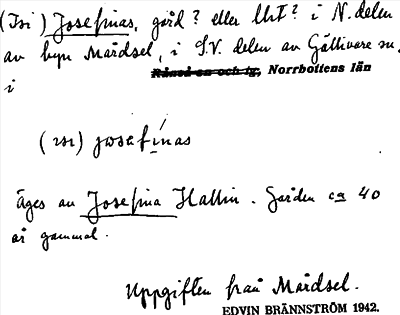 (Isi) Josefinas, gård? eller Utt? i N. delen
av byn Mårdsel, i S.V. delen av Gällivare sn,
Råneå sn och tg, Norrbottens län
i
(ısı) josefinas
Äges av Josefina Hallin. Gården ca 40
år gammal.
Uppgiften från Mårdsel.
EDVIN BRÄNNSTRÖM 1942.